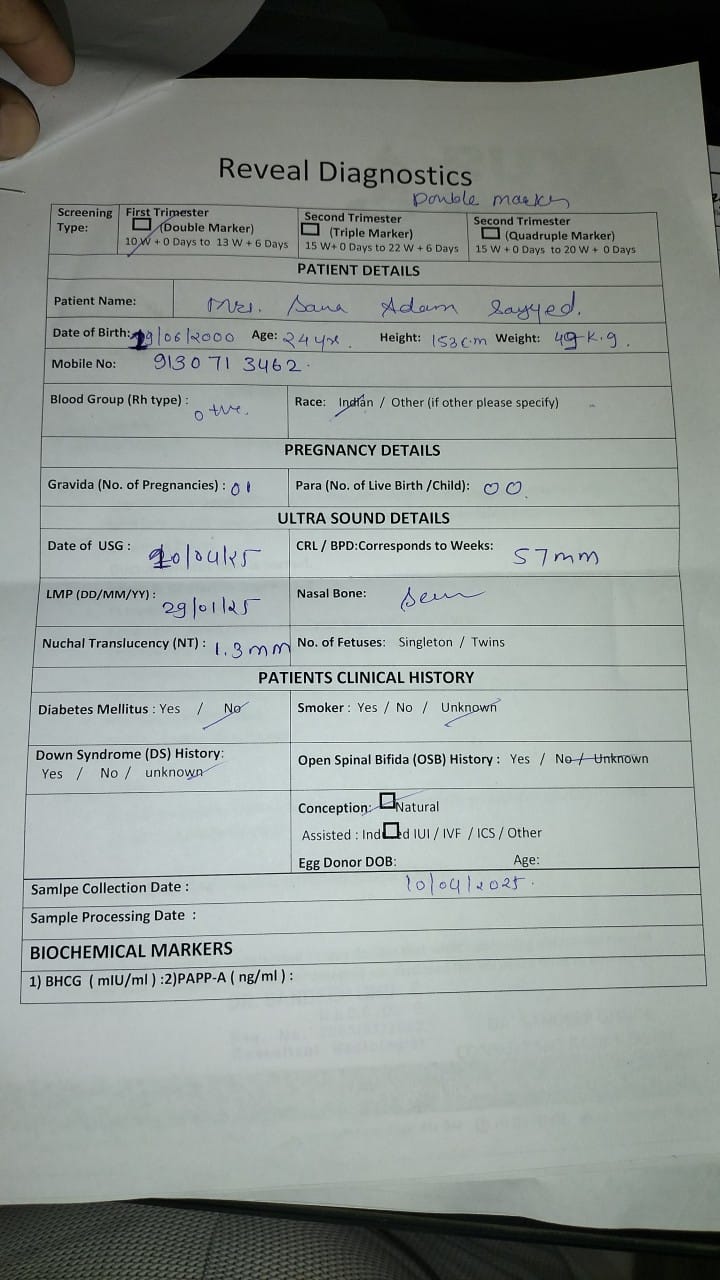 Reveal Diagnostics
Double marker
Screening Type: First Trimester (Double Marker) 10 W + 0 Days to 13 W + 6 Days Second Trimester (Triple Marker) 15 W+ 0 Days to 22 W + 6 Days Second Trimester (Quadruple Marker) 15 W + 0 Days to 20 W + 0 Days
PATIENT DETAILS
Patient Name: Mrs. Sana Adam Sayyed.
Date of Birth: 19/06/2000 Age: 24 yrs. Height: 153 c.m Weight: 49 K.g.
Mobile No: 9130713462.
Blood Group (Rh type) : O +ve. Race: Indian / Other (if other please specify) -
PREGNANCY DETAILS
Gravida (No. of Pregnancies) : 01 Para (No. of Live Birth /Child): 00.
ULTRA SOUND DETAILS
Date of USG : 10/04/25 CRL / BPD:Corresponds to Weeks: 57mm
LMP (DD/MM/YY) : 29/01/25 Nasal Bone: Seen
Nuchal Translucency (NT) : 1.3 mm No. of Fetuses: Singleton / Twins
PATIENTS CLINICAL HISTORY
Diabetes Mellitus : Yes / No Smoker : Yes / No / Unknown
Down Syndrome (DS) History: Yes / No / unknown Open Spinal Bifida (OSB) History : Yes / No / Unknown
Conception: Natural
Assisted : Ind ed IUI / IVF / ICS / Other
Egg Donor DOB: Age:
Samlpe Collection Date : 10/04/2025.
Sample Processing Date :
BIOCHEMICAL MARKERS
1) BHCG ( mIU/ml ) :2)PAPP-A ( ng/ml ) :